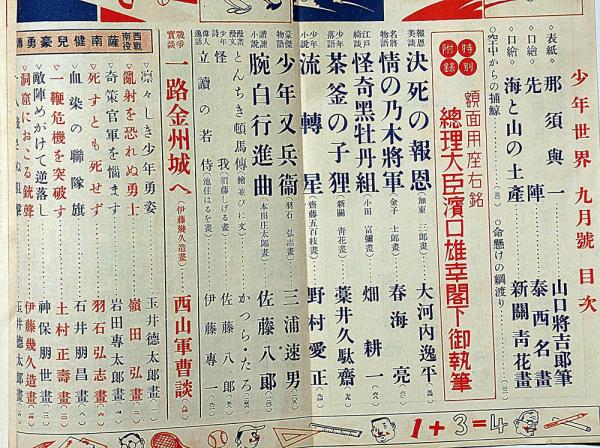 少年世界 九月號 目次
◇表紙 那須與一 山口將吉郎筆
◇口繪 先陣 泰西名畫
◇口繪 海と山の土產 新關靑花畫
◇空中からの捕鯨 ◇命懸けの綱渡り
特別附錄 額面用座右銘
總理大臣濱口雄幸閣下御執筆
報恩美談 決死の報恩 (加東三郎畫) 大河內逸平
名將物語 情の乃木將軍 (金子士郎畫) 春海亮
江戶綺談 怪奇黑牡丹組 (小田富彌畫) 畑耕一
少年落語 茶釜の子狸 (新關靑花畫) 藁井久駄齋
少年小說 流轉星 (齋藤五百枝畫) 野村愛正
豪傑物語 少年又兵衞 (羽石弘志畫) 三浦速男
諧謔小說 腕白行進曲 (本田庄太郎畫) 佐藤八郞
漫文漫畫 とんちき頓馬傳 (繪並びに文) かつら・たろ
少年詩 怪我 (須藤しげる畫) 佐藤八郞
偉人逸話 立讀の若侍 (池住はるを畫) 伊藤專一
戰爭實談 一路金州城へ (伊藤幾久造畫) 西山軍曹談
西南戰役 薩南健兒豪勇
▽凛々しき少年勇姿 玉井德太郎畫
▽亂射を恐れぬ勇士 嶺田弘畫
▽奇策官軍を惱ます 岩田專太郎畫
▽死すとも死せず 羽石弘志畫
▽血染の聯隊旗 石井朋昌畫
▽一鞭危機を突破す 土村正壽畫
▽敵陣めがけて逆落し 神保朋世畫
▽洞窟における銃聲 伊藤幾久造畫
玉井德太郎畫
1+3=4